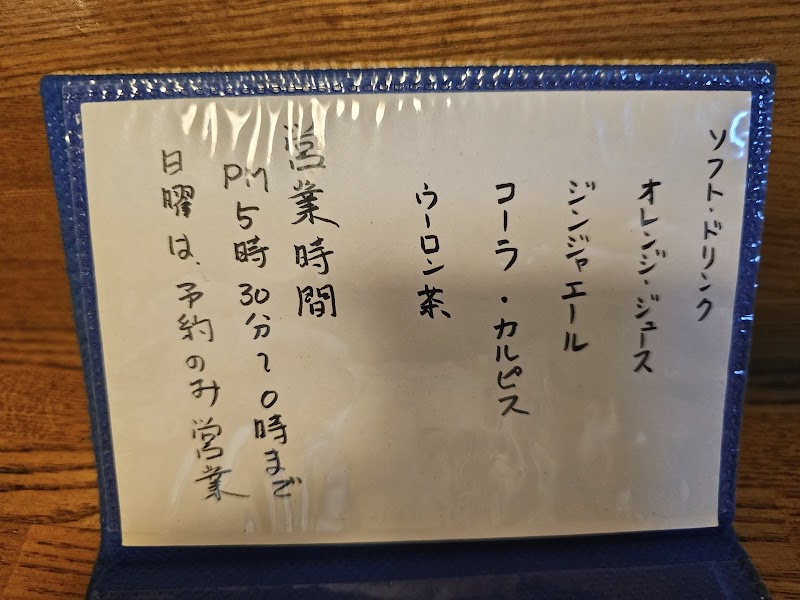 ソフト・ドリンク
オレンジ・ジュース
ジンジャエール
コーラ・カルピス
ウーロン茶
営業時間
PM5時30分〜0時まで
日曜は、予約のみ営業